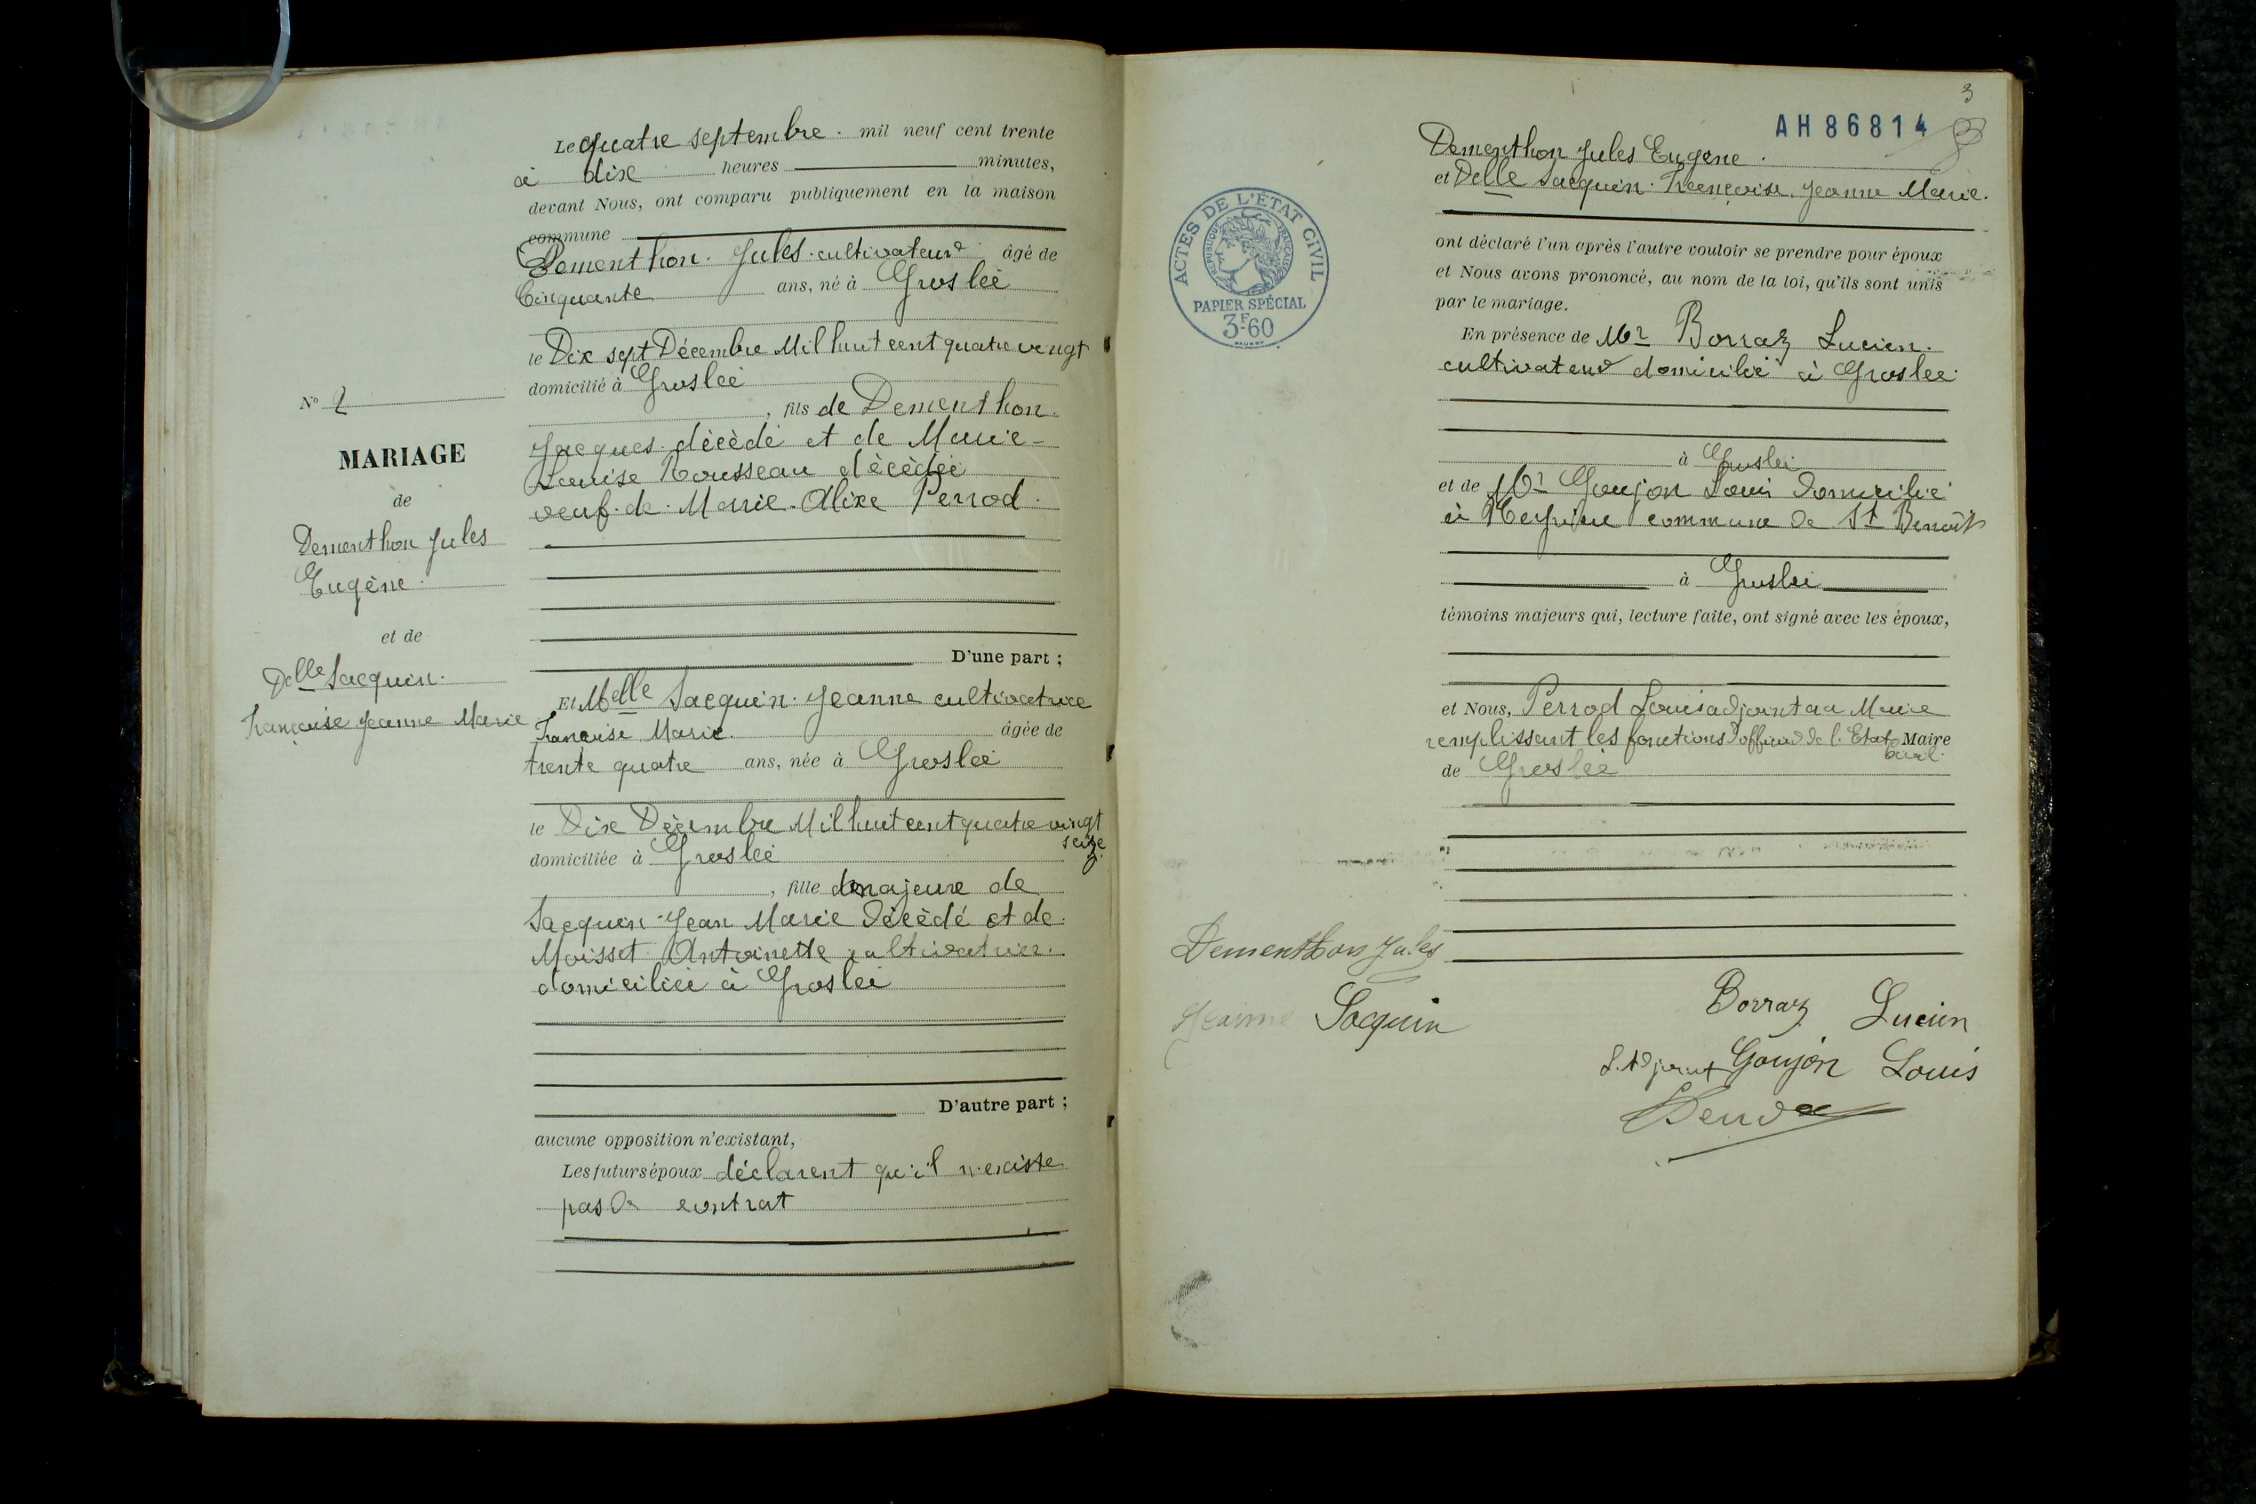 Le quatre septembre. mil neuf cent trente
à dix heures minutes,
devant Nous, ont comparu publiquement en la maison
commune
Dementhon. Jules. cultivateur âgé de
Cinquante ans, né à Groslée
le Dix sept Décembre Mil huit cent quatre vingt
domicilié à Groslée
, fils de Dementhon.
Jacques. décédé et de Marie-
Louise Rousseau décédée
veuf. de. Marie. Alixe Perrod.
D'une part ;
Et Melle Sacquin. Jeanne cultivatrice
Françoise Marie. âgée de
trente quatre ans, née à Groslée
le Dix Décembre Mil huit cent quatre vingt
seize
domiciliée à Groslée
, fille majeure de
Sacquin. Jean Marie Décédé et de.
Moisset Antoinette cultivatrice.
domiciliée à Groslée
D'autre part ;
aucune opposition n'existant,
Les futurs époux déclarent qu'il n'existe
pas de contrat
No 2
MARIAGE
de
Dementhon Jules
Eugène.
et de
Delle Sacquin.
Françoise Jeanne Marie
3
AH 86814
Dementhon Jules Eugène.
et Delle Sacquin. Françoise. Jeanne Marie.
ACTES DE L'ETAT CIVIL
REPUBLIQUE FRANÇAISE
PAPIER SPÉCIAL
3F60
ont déclaré l'un après l'autre vouloir se prendre pour époux
et Nous avons prononcé, au nom de la loi, qu'ils sont unis
par le mariage.
En présence de Mr Borraz Lucien.
cultivateur domicilié à Groslée
à Groslée
et de Mr Goujon Louis domicilié
à commune de St Benoît
à Groslée
témoins majeurs qui, lecture faite, ont signé avec les époux,
et Nous, Perrod Louis adjoint au Maire
remplissant les fonctions d'officier de l'Etat Maire
civil.
de Groslée
Dementhon Jules
Jeanne Sacquin
Borraz Lucien
L'Adjoint Goujon Louis